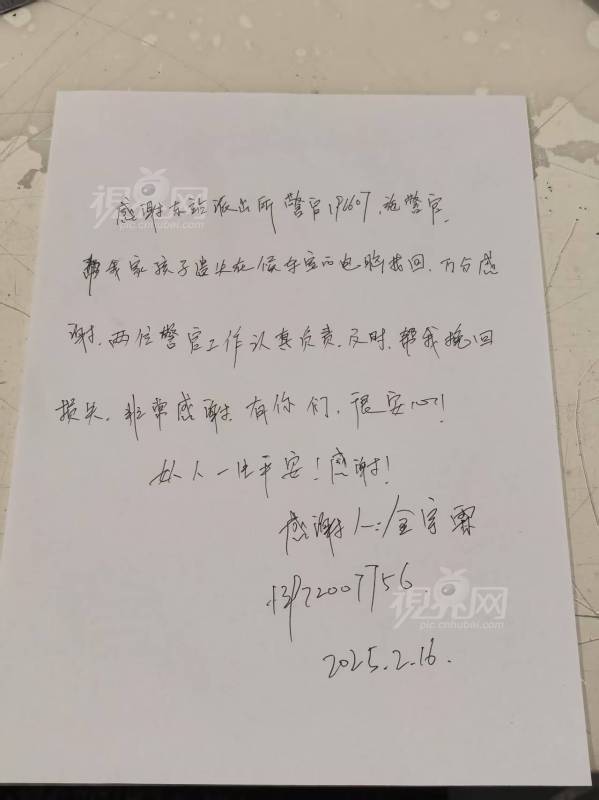 感谢东站派出所警官19607,施警官.
帮我家孩子遗失在候车室的电脑找回.万分感
谢.两位警官工作认真负责.及时.帮我挽回
损失.非常感谢.有你们,很安心!
好人一生平安!感谢!
感谢人:金宇霖
13972007756.
2025.2.16.
視界网
pic.cnhubei.com
視界网
pic.cnhubei.com